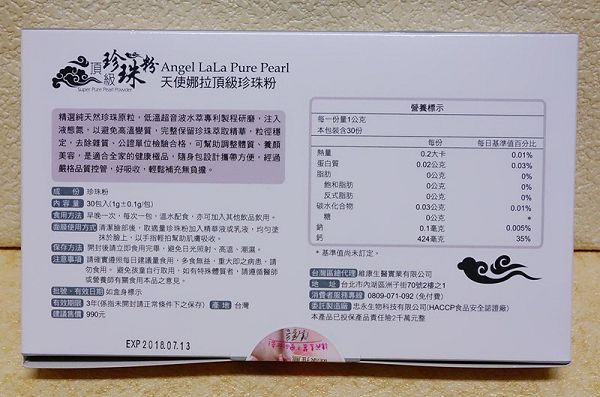 頂級
珍珠粉
Super Pure Pearl Powder
Angel LaLa Pure Pearl
天使娜拉頂級珍珠粉
精選純天然珍珠原粒，低溫超音波水萃專利製程研磨，注入
液態氮，以避免高溫變質，完整保留珍珠萃取精華，粒徑穩
定，去除雜質、公證單位檢驗合格，可幫助調整體質、養顏
美容，是適合全家的健康極品，隨身包設計攜帶方便，經過
嚴格品質控管，好吸收，輕鬆補充無負擔。
成　份 珍珠粉
內 容 量 30包入(1g±0.1g/包)
食用方法 早晚一次，每次一包，溫水配食，亦可加入其他飲品飲用。
面膜使用方式 清潔臉部後，取適量珍珠粉加入精華液或乳液，均勻塗
抹於臉上，以手指輕拍幫助肌膚吸收。
保存方法 開封後請立即食用完畢，避免日光照射、高溫、潮濕。
注意事項 請確實遵照每日建議量食用，多食無益，重大即之病患，請
勿食用。避免孩童自行取用，如有特殊體質者，請遵循醫師
或營養師有關食用本品之意見。
批號、有效日期 如盒身標示
有效期限 3年(係指未開封請正常條件下之保存) 產 地 台灣
建議售價 990元
EXP 2018.07.13
營養標示
每一份量1公克
本包裝含30份
每份 每日基準值百分比
熱量 0.2大卡 0.01%
蛋白質 0.02公克 0.03%
脂肪 0公克 0%
飽和脂肪 0公克 0%
反式脂肪 0公克 0%
碳水化合物 0.03公克 0.01%
糖 0公克 *
鈉 0.1毫克 0.005%
鈣 424毫克 35%
* 基準值尚未訂定。
台灣區總代理 維康生醫實業有限公司
地　址 台北市內湖區洲子街70號2樓之1
消費者服務專線 0809-071-092 (免付費)
委託製造廠 忠永生物科技有限公司(HACCP食品安全認證廠)
本產品已投保產品責任險2千萬元整